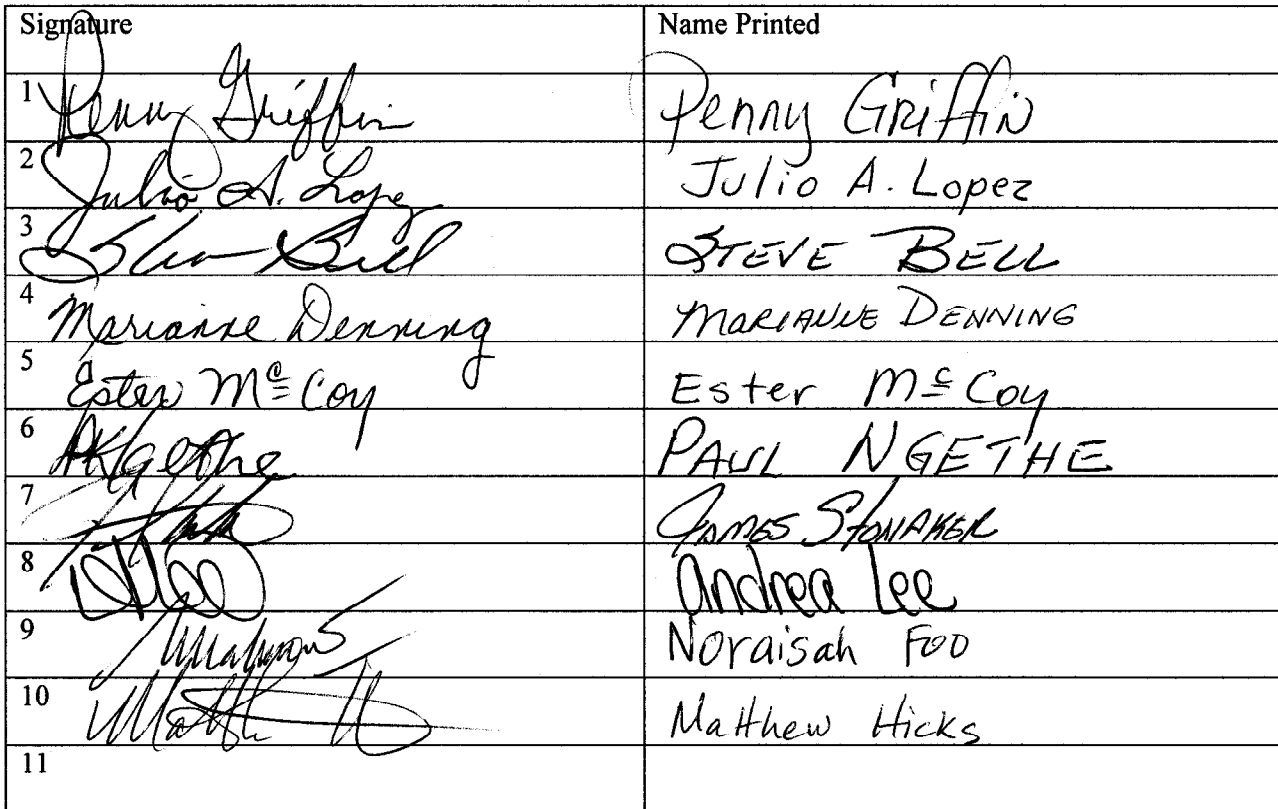 Signature Name Printed
1 Penny Griffin Penny Griffin
2 Julio A. Lopez Julio A. Lopez
3 Bell STEVE BELL
4 Marianne Denning MARIANNE DENNING
5 Ester McCoy Ester McCoy
6 PKNgethe PAUL NGETHE
7 JAMES STONAKER
8 ALee Andrea Lee
9 Noraisah Foo
10 Matth Matthew Hicks
11